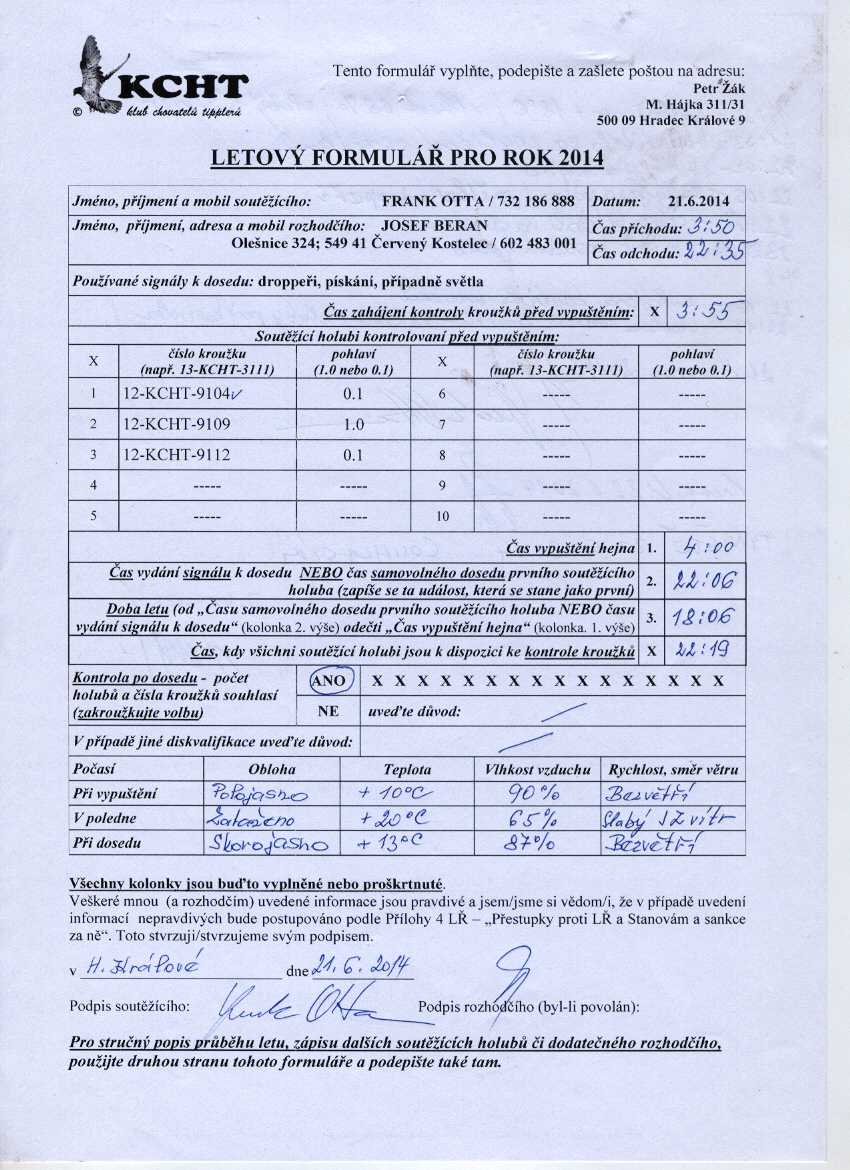 KCHT
© klub chovatelů tipplerů
Tento formulář vyplňte, podepište a zašlete poštou na adresu:
Petr Žák
M. Hájka 311/31
500 09 Hradec Králové 9
LETOVÝ FORMULÁŘ PRO ROK 2014
Jméno, příjmení a mobil soutěžícího: FRANK OTTA / 732 186 888 Datum: 21.6.2014
Jméno, příjmení, adresa a mobil rozhodčího: JOSEF BERAN Čas příchodu: 3:50
Olešnice 324; 549 41 Červený Kostelec / 602 483 001 Čas odchodu: 22:35
Používané signály k dosedu: droppeři, pískání, případně světla
Čas zahájení kontroly kroužků před vypuštěním: X 3:55
Soutěžící holubi kontrolovaní před vypuštěním:
X číslo kroužku pohlaví X číslo kroužku pohlaví
(např. 13-KCHT-3111) (1.0 nebo 0.1) (např. 13-KCHT-3111) (1.0 nebo 0.1)
1 12-KCHT-9104✓ 0.1 6 ----- -----
2 12-KCHT-9109 1.0 7 ----- -----
3 12-KCHT-9112 0.1 8 ----- -----
4 ----- ----- 9 ----- -----
5 ----- ----- 10 ----- -----
Čas vypuštění hejna 1. 4:00
Čas vydání signálu k dosedu NEBO čas samovolného dosedu prvního soutěžícího
holuba (zapíše se ta událost, která se stane jako první) 2. 22:06
Doba letu (od „Času samovolného dosedu prvního soutěžícího holuba NEBO času
vydání signálu k dosedu“ (kolonka 2. výše) odečti „Čas vypuštění hejna“ (kolonka. 1. výše) 3. 18:06
Čas, kdy všichni soutěžící holubi jsou k dispozici ke kontrole kroužků X 22:19
Kontrola po dosedu - počet ANO X X X X X X X X X X X X X X X X
holubů a čísla kroužků souhlasí
(zakroužkujte volbu) NE uveďte důvod:
V případě jiné diskvalifikace uveďte důvod:
Počasí Obloha Teplota Vlhkost vzduchu Rychlost, směr větru
Při vypuštění Polojasno + 10°C 90% Bezvětří
V poledne Zataženo +20°C 65% Slabý JZ vítr
Při dosedu Skorojasno + 13°C 87% Bezvětří
Všechny kolonky jsou buďto vyplněné nebo proškrtnuté.
Veškeré mnou (a rozhodčím) uvedené informace jsou pravdivé a jsem/jsme si vědom/i, že v případě uvedení
informací nepravdivých bude postupováno podle Přílohy 4 LŘ – „Přestupky proti LŘ a Stanovám a sankce
za ně“. Toto stvrzuji/stvrzujeme svým podpisem.
v H. Králové dne 21.6.2014
Podpis soutěžícího: Otta Podpis rozhodčího (byl-li povolán):
Pro stručný popis průběhu letu, zápisu dalších soutěžících holubů či dodatečného rozhodčího,
použijte druhou stranu tohoto formuláře a podepište také tam.